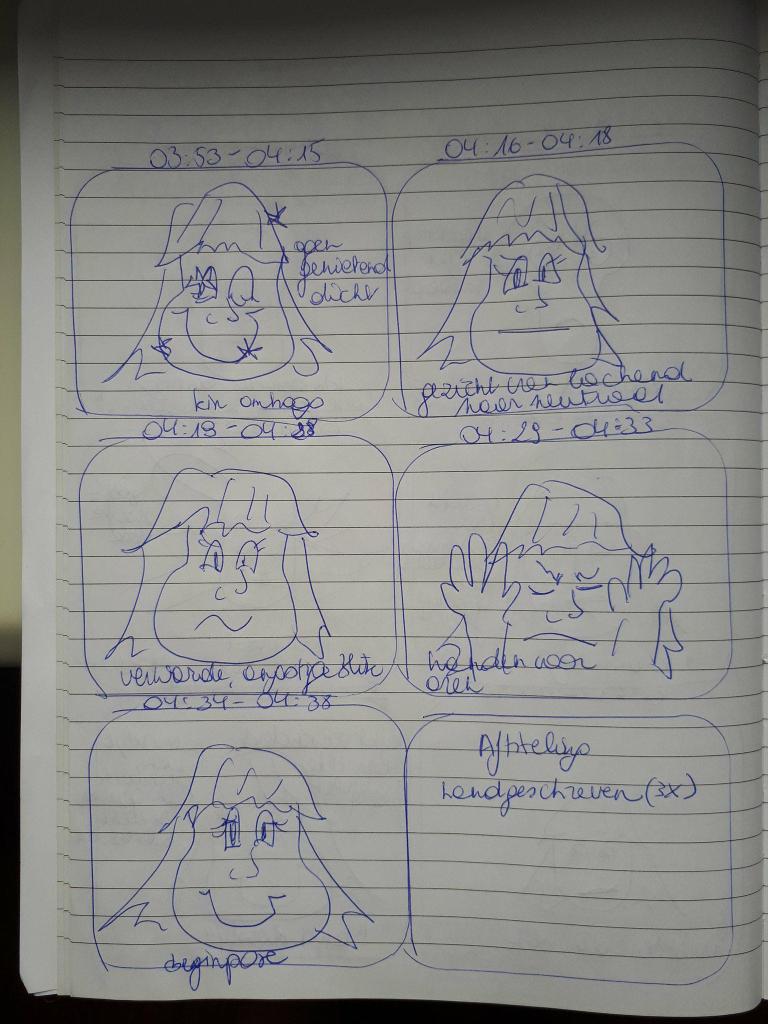 03:53 - 04:15
open
genietend
dicht
kin omhoog
04:16 - 04:18
gezicht van lachend
naar neutraal
04:19 - 04:28
verwarde,
04:29 - 04:33
handen voor
oren
04:34 - 04:38
beginpose
Aftiteling
handgeschreven (3x)